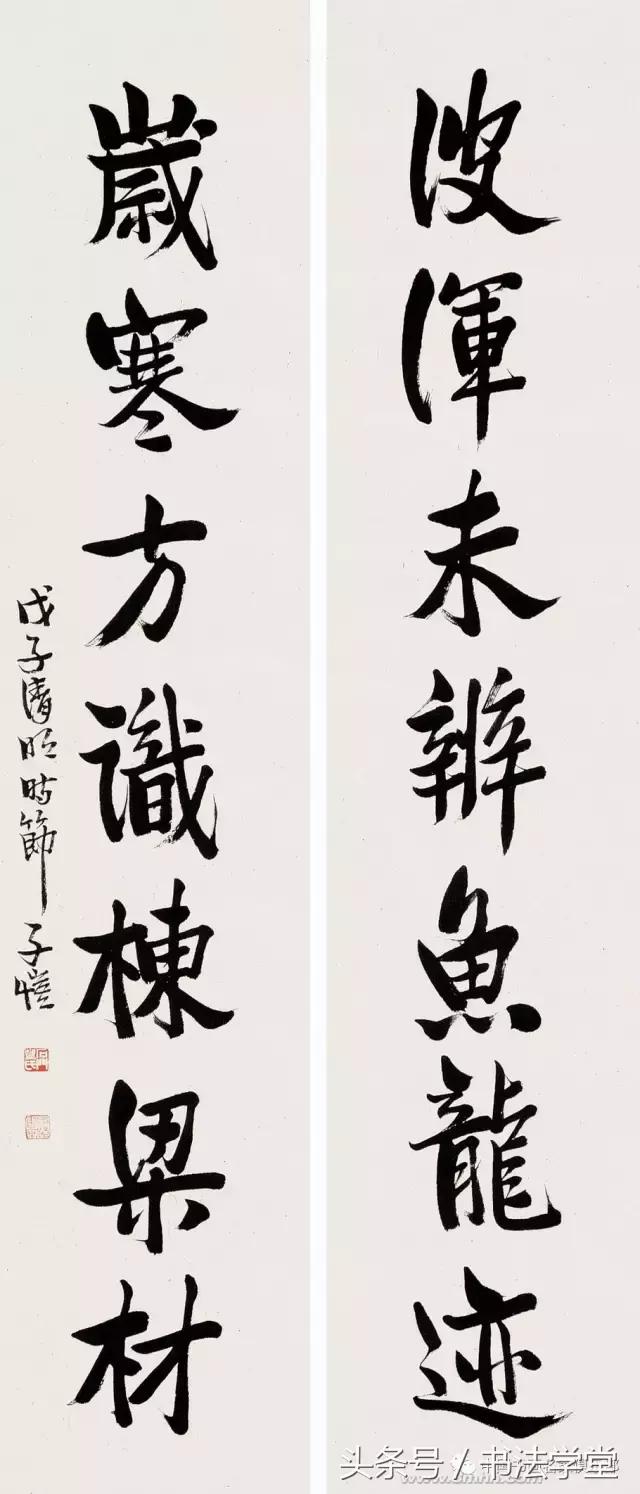 波渾未辨魚龍迹
歲寒方識棟梁材
戊子清明時節 子愷
头条号 / 书法学堂